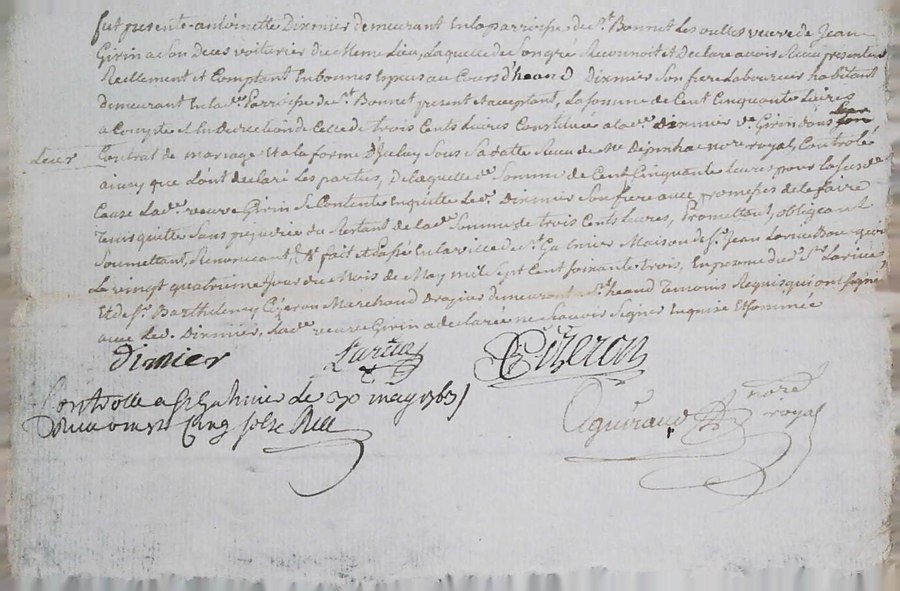 fut presente antoinette Dirmier demeurant En la parroisse de St. Bonnet Les oulles veuve de Jean
Girin a son Deces voiturier du meme Lieu, Laquelle de son gre Reconnoit et Declare avoir Receu presentem
Reellement et Comptant En bonnes Especes au Cours d' heand Dirmier son frere Laboureur habitant
demeurant En lad. Parroisse de St. Bonnet present et acceptant, La somme de Cent Cinquante Livres
a Compte et En deduction de Celle de trois Cents Livres Constituée a lad. dirmier ve. Girin dans son
Leur Contrat de mariage Et a la forme d'Iceluy Sous Sa datte Receu de Me nore royal, Controlé
ainsy que L'ont declaré Les parties, De laquelle de. Somme de Cent Cinquante Livres pour la susde.
Cause Lade. veuve Girin Se Contente En quitte led. dirmier Son frere avec promesses de le faire
Tenir quitte Sans prejudice du Restant de lade. Somme de trois Cents Livres, Promettant, obligeant
Soumettant, Renonceant, &a. fait et Passé En la ville de St. Galmier Maison de Sr. Jean
Le vingt quatrieme Jour du Mois de May mil Sept Cent soixante trois, En presence dud. Sr.
Et de Sr. Barthelemy Cizeron Marchand demeurant a St. heand Temoins Requis qui ont signé
avec led. Dirmier, Lade. veuve Girin a declaré ne Scavoir Signer Enquise Et Sommée
dirmier Cizeron
Controllé a St Galmier le 30 may 1763
Receu Cinq sols
nore
royal